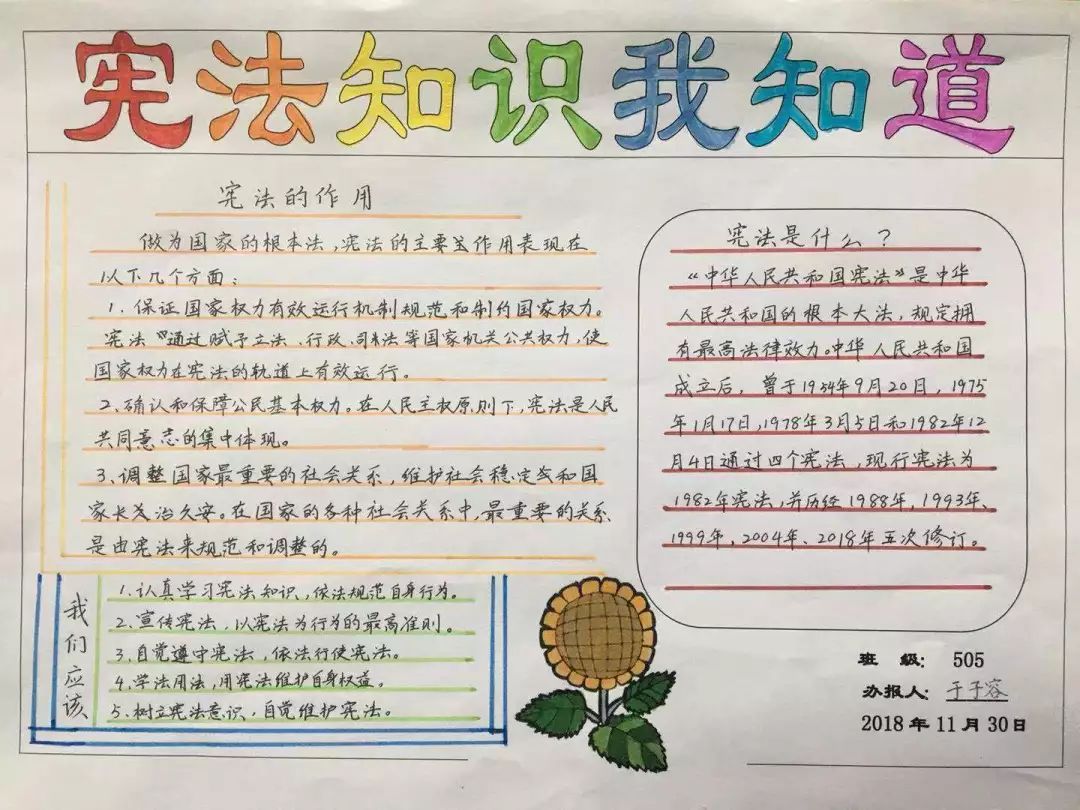 宪法知识我知道
宪法的作用
做为国家的根本法,宪法的主要作用表现在
以下几个方面:
1.保证国家权力有效运行机制规范和制约国家权力。
宪法“通过赋予立法、行政、司法等国家机关公共权力,使
国家权力在宪法的轨道上有效运行。
2、确认和保障公民基本权力。在人民主权原则下,宪法是人民
共同意志的集中体现。
3、调整国家最重要的社会关系,维护社会稳定和国
家长久治久安。在国家的各种社会关系中,最重要的关系
是由宪法来规范和调整的。
宪法是什么?
“中华人民共和国宪法”是中华
人民共和国的根本大法,规定拥
有最高法律效力。中华人民共和国
成立后,曾于1954年9月20日,1975
年1月17日,1978年3月5日和1982年12
月4日通过四个宪法,现行宪法为
1982年宪法,并历经1988年,1993年、
1999年,2004年、2018年五次修订。
我们应该
1.认真学习宪法知识、依法规范自身行为。
2.宣传宪法,以宪法为行为的最高准则。
3.自觉遵守宪法,依法行使宪法。
4.学法用法,用宪法维护自身权益。
5.树立宪法意识,自觉维护宪法。
班 级: 505
办报人: 于子容
2018年11月30日